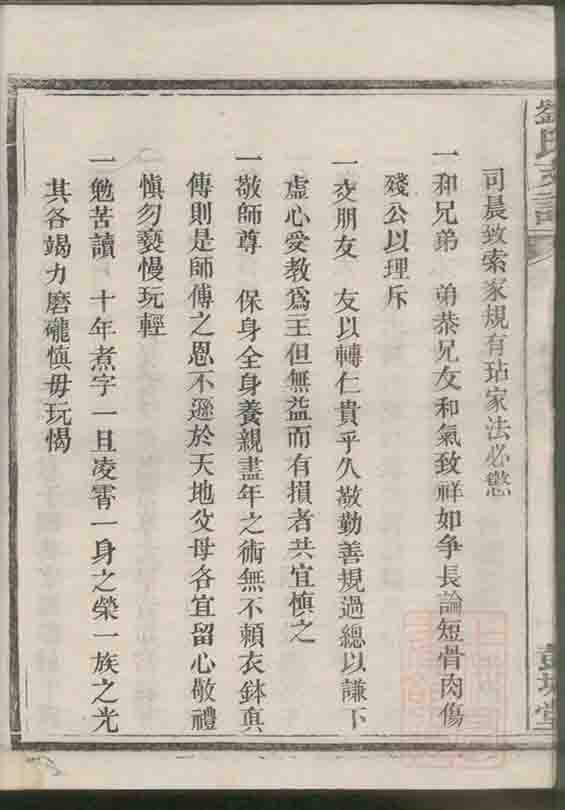 劉氏支譜
彭城堂
司晨致索家規有玷家法必懲
一和兄弟 弟恭兄友和氣致祥如争長論短骨肉傷
殘公以理斥
一交朋友 友以轉仁貴乎久敬勤善規過總以謙下
虛心受教爲王但無益而有損者共宜慎之
一敬師尊 保身全身養親盡年之術無不賴衣鉢真
傳則是師傅之恩不遜於天地父母各宜留心敬禮
慎勿褻慢玩輕
一勉苦讀 十年煮字一旦凌霄一身之榮一族之光
其各竭力磨礲慎毋玩愒